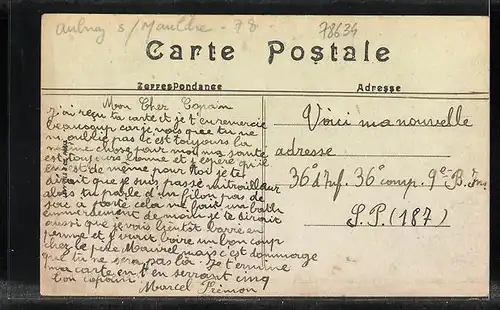 Aulnay s/Mauldre - 78 -
78634
Carte Postale
Correspondance
Adresse
Mon Cher Copain
j'ai reçu ta carte et je t'en remercie
beaucoup car je vois que tu ne
m'oublie pas c'est toujours la
même chose pour moi ma santé
est toujours bonne et j'espère qu'il
en est de même pour toi je te
dirait que je suis passé mitrailleur
alors tu parle d'un filon pas de
sac à porté cela me fait un
de moin je te dirait
aussi que je vais bientôt barré en
perme et j'irait boire un bon coup
chez le père Maurel mais c'est dommage
que tu ne sera pas là. Je termine
ma carte en t'en serrant cinq
ton copain Marcel
Voici ma nouvelle
adresse
36e d'Inf. 36e comp. 9e B.
S.P. (187)